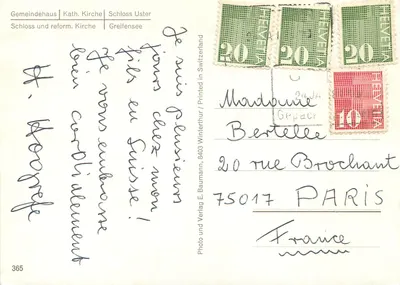 Gemeindehaus Kath. Kirche Schloss Uster
Schloss und reform. Kirche Greifensee
Je suis plusieurs
jours chez mon
fils en Suisse!
Je vous embrasse
bien cordialement
H
365
Photo und Verlag E. Baumann, 8403 Winterthur / Printed in Switzerland
HELVETIA 20
HELVETIA 20
HELVETIA 20
HELVETIA 10
Madame
Bertelle
20 rue Brochant
75017 PARIS
France